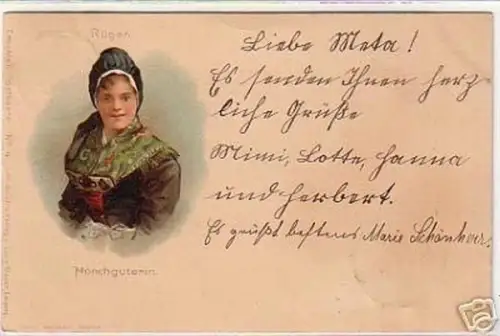 Rügen
Liebe Meta!
Es senden Ihnen herz-
liche Grüße
Mimi, Lotte, Hanna
und Herbert.
Es grüßt bestens Marie Schönherr.
Mönchguterin.